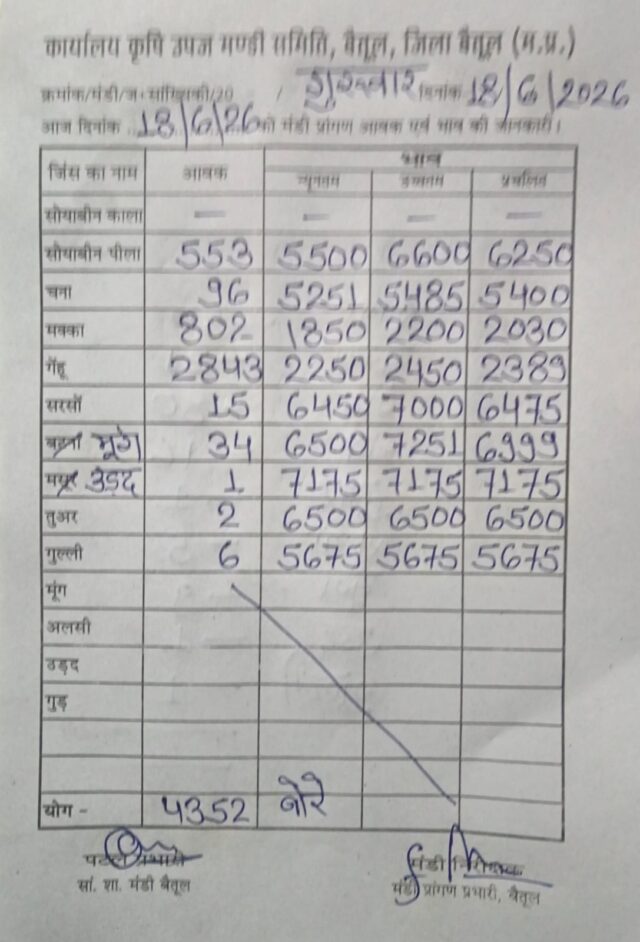 कार्यालय कृषि उपज मण्डी समिति, बैतूल, जिला बैतूल (म.प्र.)
क्रमांक/मंडी/ज.सांख्यिकी/20 / गुरुवार दिनांक 18/6/2026
आज दिनांक 18/6/26 को मंडी प्रांगण आवक एवं भाव की जानकारी।
जिंस का नाम आवक भाव
न्यूनतम उच्चतम प्रचलित
सोयाबीन काला — — — —
सोयाबीन पीला 553 5500 6600 6250
चना 96 5251 5485 5400
मक्का 802 1850 2200 2030
गेंहू 2843 2250 2450 2389
सरसों 15 6450 7000 6475
मूंग 34 6500 7251 6999
मसूर उड़द 1 7175 7175 7175
तुअर 2 6500 6500 6500
गुल्ली 6 5675 5675 5675
मूंग
अलसी
उड़द
गुड़
योग - 4352 बोरे
प्रभारी मंडी निरीक्षक
सां. शा. मंडी बैतूल मंडी प्रांगण प्रभारी, बैतूल